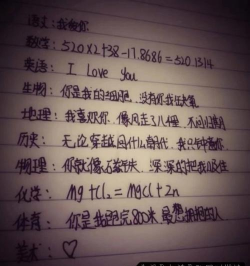 语文：我爱你
数学：520X2+38-17.8686=520.1314
英语：I Love You
生物：你是我的细胞，没有你我活不
地理：我喜欢你，像风走了八里，不问归期
历史：无论穿越回什么朝代，我只
物理：你就像磁铁，深深的把我吸住
化学：Mg+Cl₂=MgCl+2n
体育：你是我跑完800米最想拥抱的人
美术：♡